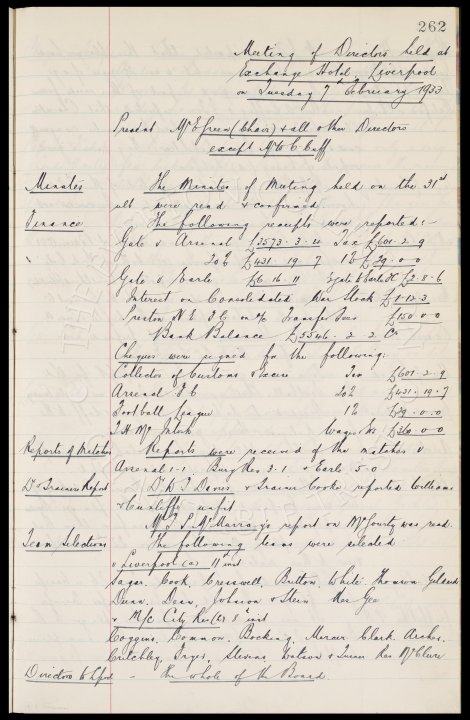 262
Meeting of Directors held at
Exchange Hotel, Liverpool
on Tuesday 7th February 1933
Present Mr E Green (Chair) & all other Directors
except Mr W C Cuff
Minutes The Minutes of Meeting held on the 31st
ult were read & confirmed
Finance The following receipts were reported:-
Gate v Arsenal £2573. 3. 4 Tax £601. 2. 9
20% £431. 19. 7 1% £29. 0. 0
Gate v Earle £6. 16. 11 £2. 8. 6
Interest on Consolidated Stock £1. 12. 3
Preston N E F C on a/c Transfer Fees £150. 0. 0
Bank Balance £5546. 2. 2 Cr
Cheques were signed for the following:
Collector of Customs & Excise Tax £601. 2. 9
Arsenal F C 20% £431. 19. 7
Football League 1% £29. 0. 0
T. H. McIntosh Wages &c
Reports of Matches Reports were received of the matches v
Arsenal 1-1, Bury Res 3-1 & Earle 5-0
Dr & Trainers Report Dr D J Davies & Trainer Cooke reported Williams
& Cunliffe unfit
Mr T S McMurray's report on McGourty was read.
Team Selections The following teams were selected
v Liverpool (a) 11th inst
Sagar, Cook, Cresswell, Britton, White, Thomson, Geldard
Dunn, Dean, Johnson & Stein Res Gee
v M/c City Res (h) 8th inst
Coggins, Common, Bocking, Mercer, Clark, Archer,
Critchley, Stevens, Watson & Turner Res McClure
Directors to L'pool - The whole of the Board.